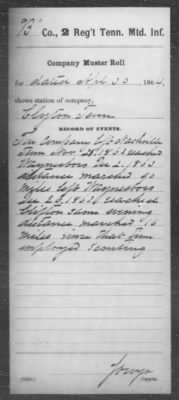 "B" Co., 2 Reg't Tenn. Mid. Inf.
Company Muster Roll
for dated Feb 1864,
shows station of company,
Clifton Tenn
RECORD OF EVENTS.
The Company left Nashville
Tenn Nov 28 1863 reached
Waynesboro Dec 2, 1863
distance marched 90
miles left Waynesboro
Dec 28, 1863 reached
Clifton same evening
distance marched 15
miles since that time
employed Scouting
Copyist.